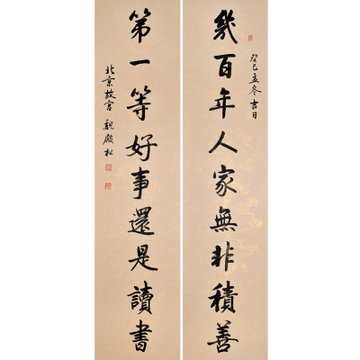 幾百年人家無非積善
癸巳孟冬吉日
第一等好事還是讀書
北京故宫 魏殿松